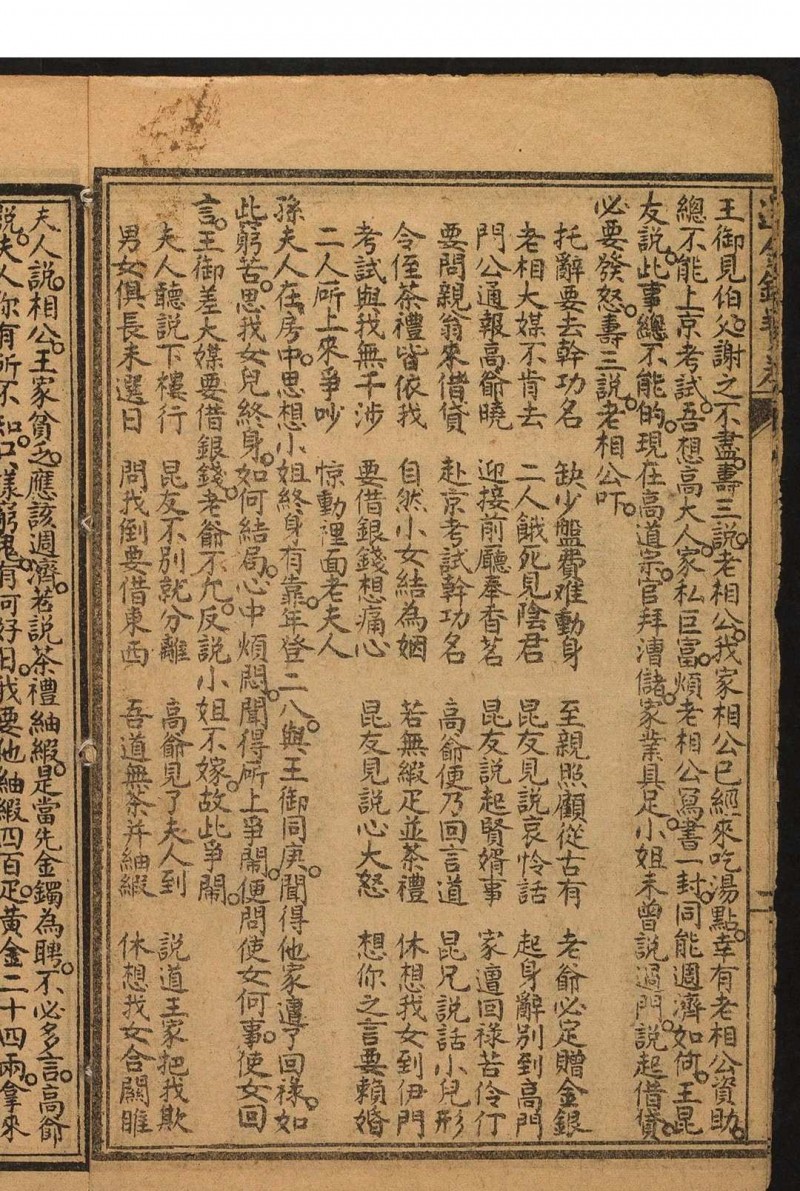 王御見伯父謝之不盡壽三說老相公我家相公已經來吃湯點幸有老相公資助
總不能上京考試吾想高大人家私巨富煩老相公寫書一封同能週濟如何王昆
友說此事總不能的現在高道宗官拜漕儲家業具足小姐未曾說過門說起借貸
必要發怒壽三說老相公吓
托辭要去幹功名 缺少盤費难動身 至親照顧從古有 老爺必定贈金銀
老相大媒不肯去 二人餓死見陰君 昆友見說哀怜話 起身辭別到高門
門公通報高爺曉 迎接前廳奉香茗 昆友說起賢婿事 家遭回祿苦伶仃
要問親翁來借貸 赴京考試幹功名 高爺便乃回言道 昆兄說話小兒形
令侄茶禮皆依我 自然小女結為姻 若無緞疋並茶禮 休想我女到伊門
考試與我無干涉 要借銀錢想痛心 昆友見說心大怒 想你之言要賴婚
二人所上來爭吵 惊動裡面老夫人
孫夫人在房中思想小姐終身有靠年登二八與王御同庚聞得他家遭了回祿如
此窮苦思我女兒終身如何結局心中煩悶聞得所上爭鬧便問使女何事使女回
言王御差大媒要借銀錢老爺不允反說小姐不嫁故此爭鬧
夫人聽說下樓行 昆友不別就分離 高爺見了夫人到 說道王家把我欺
男女俱長未選日 問我倒要借東西 吾道無茶并紬緞 休想我女合關睢
夫人說相公王家貧乏應該週濟若說茶禮紬緞是當先金鐲為聘不必多言高爺
說夫人你有所不知 樣窮鬼有何好日我要他紬緞四百疋黃金二十四兩拿來